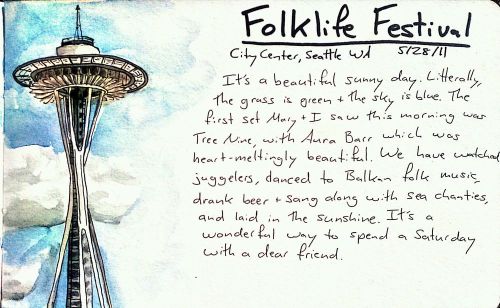 Folklife Festival
City Center, Seattle WA 5/28/11
It's a beautiful sunny day. Litterally,
the grass is green + the sky is blue. The
first set Mary + I saw this morning was
Tree Nine, with Aura Barr which was
heart-meltingly beautiful. We have watched
juggelers, danced to Balkan folk music,
drank beer + sang along with sea chanties,
and laid in the sunshine. It's a
wonderful way to spend a Saturday
with a dear friend.